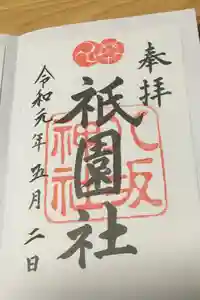 奉拝
祇園社
八坂
神社
令和元年五月二日